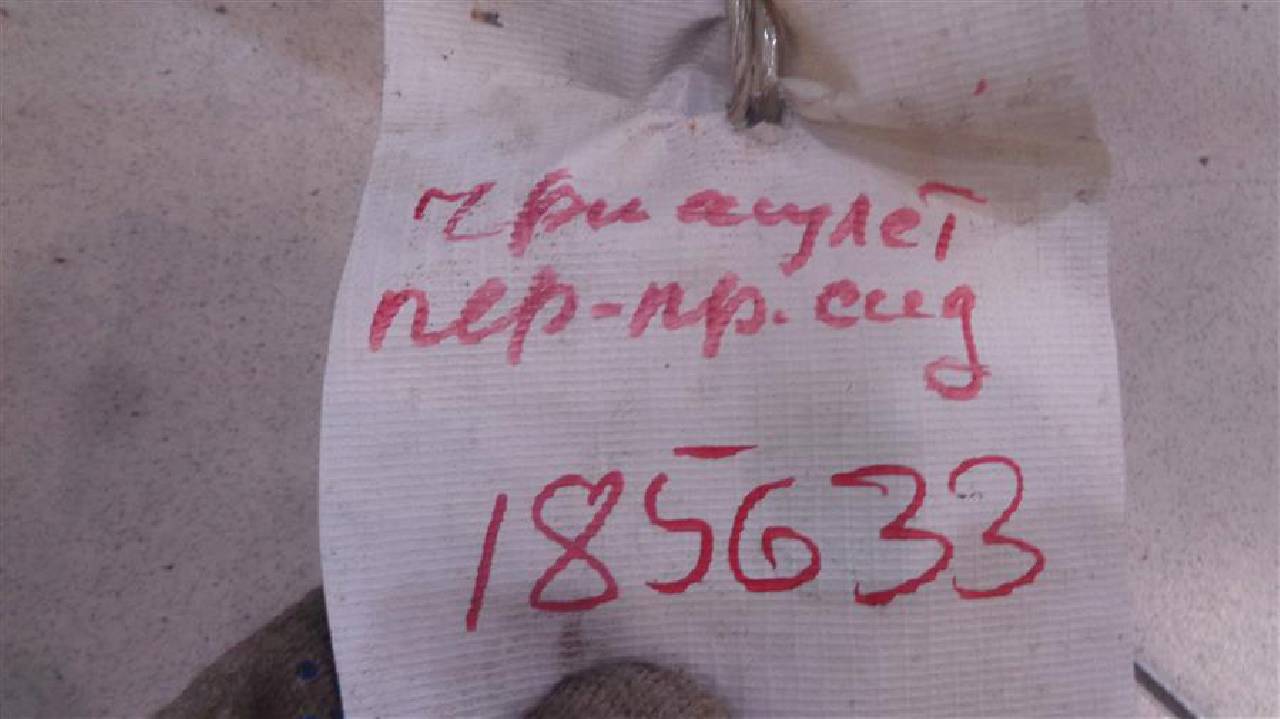 чери амулет
пер-пр. сид
185633